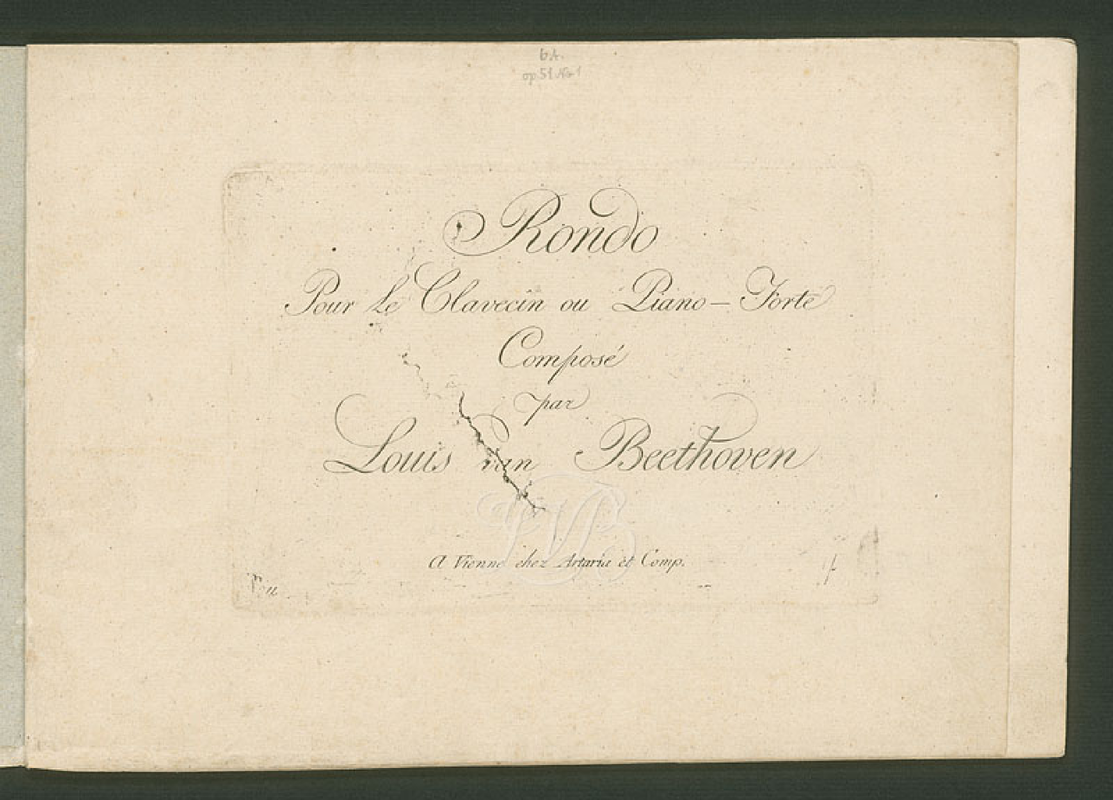 6A.
op. 51. No 1
Rondo
Pour le Clavecin ou Piano – Forte
Composé
par
Louis van Beethoven
A Vienne chez Artaria et Comp.